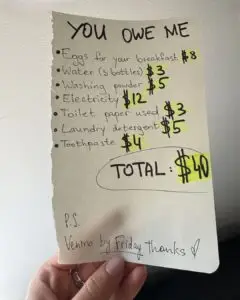 YOU OWE ME
• Eggs for your breakfast $8
• Water (3 bottles) $3
• Washing powder $5
• Electricity $12
• Toilet paper used $3
• Laundry detergent $5
• Toothpaste $4
TOTAL: $40
P.S.
Venmo by Friday thanks